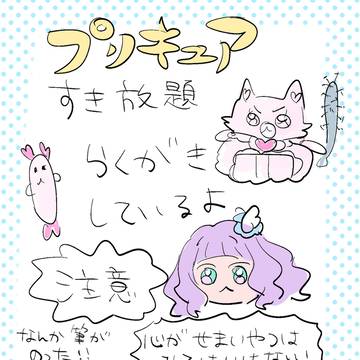 プリキュア
すき放題
らくがき
しているよ
注意
なんか筆が
のった!!
心がせまいやつは